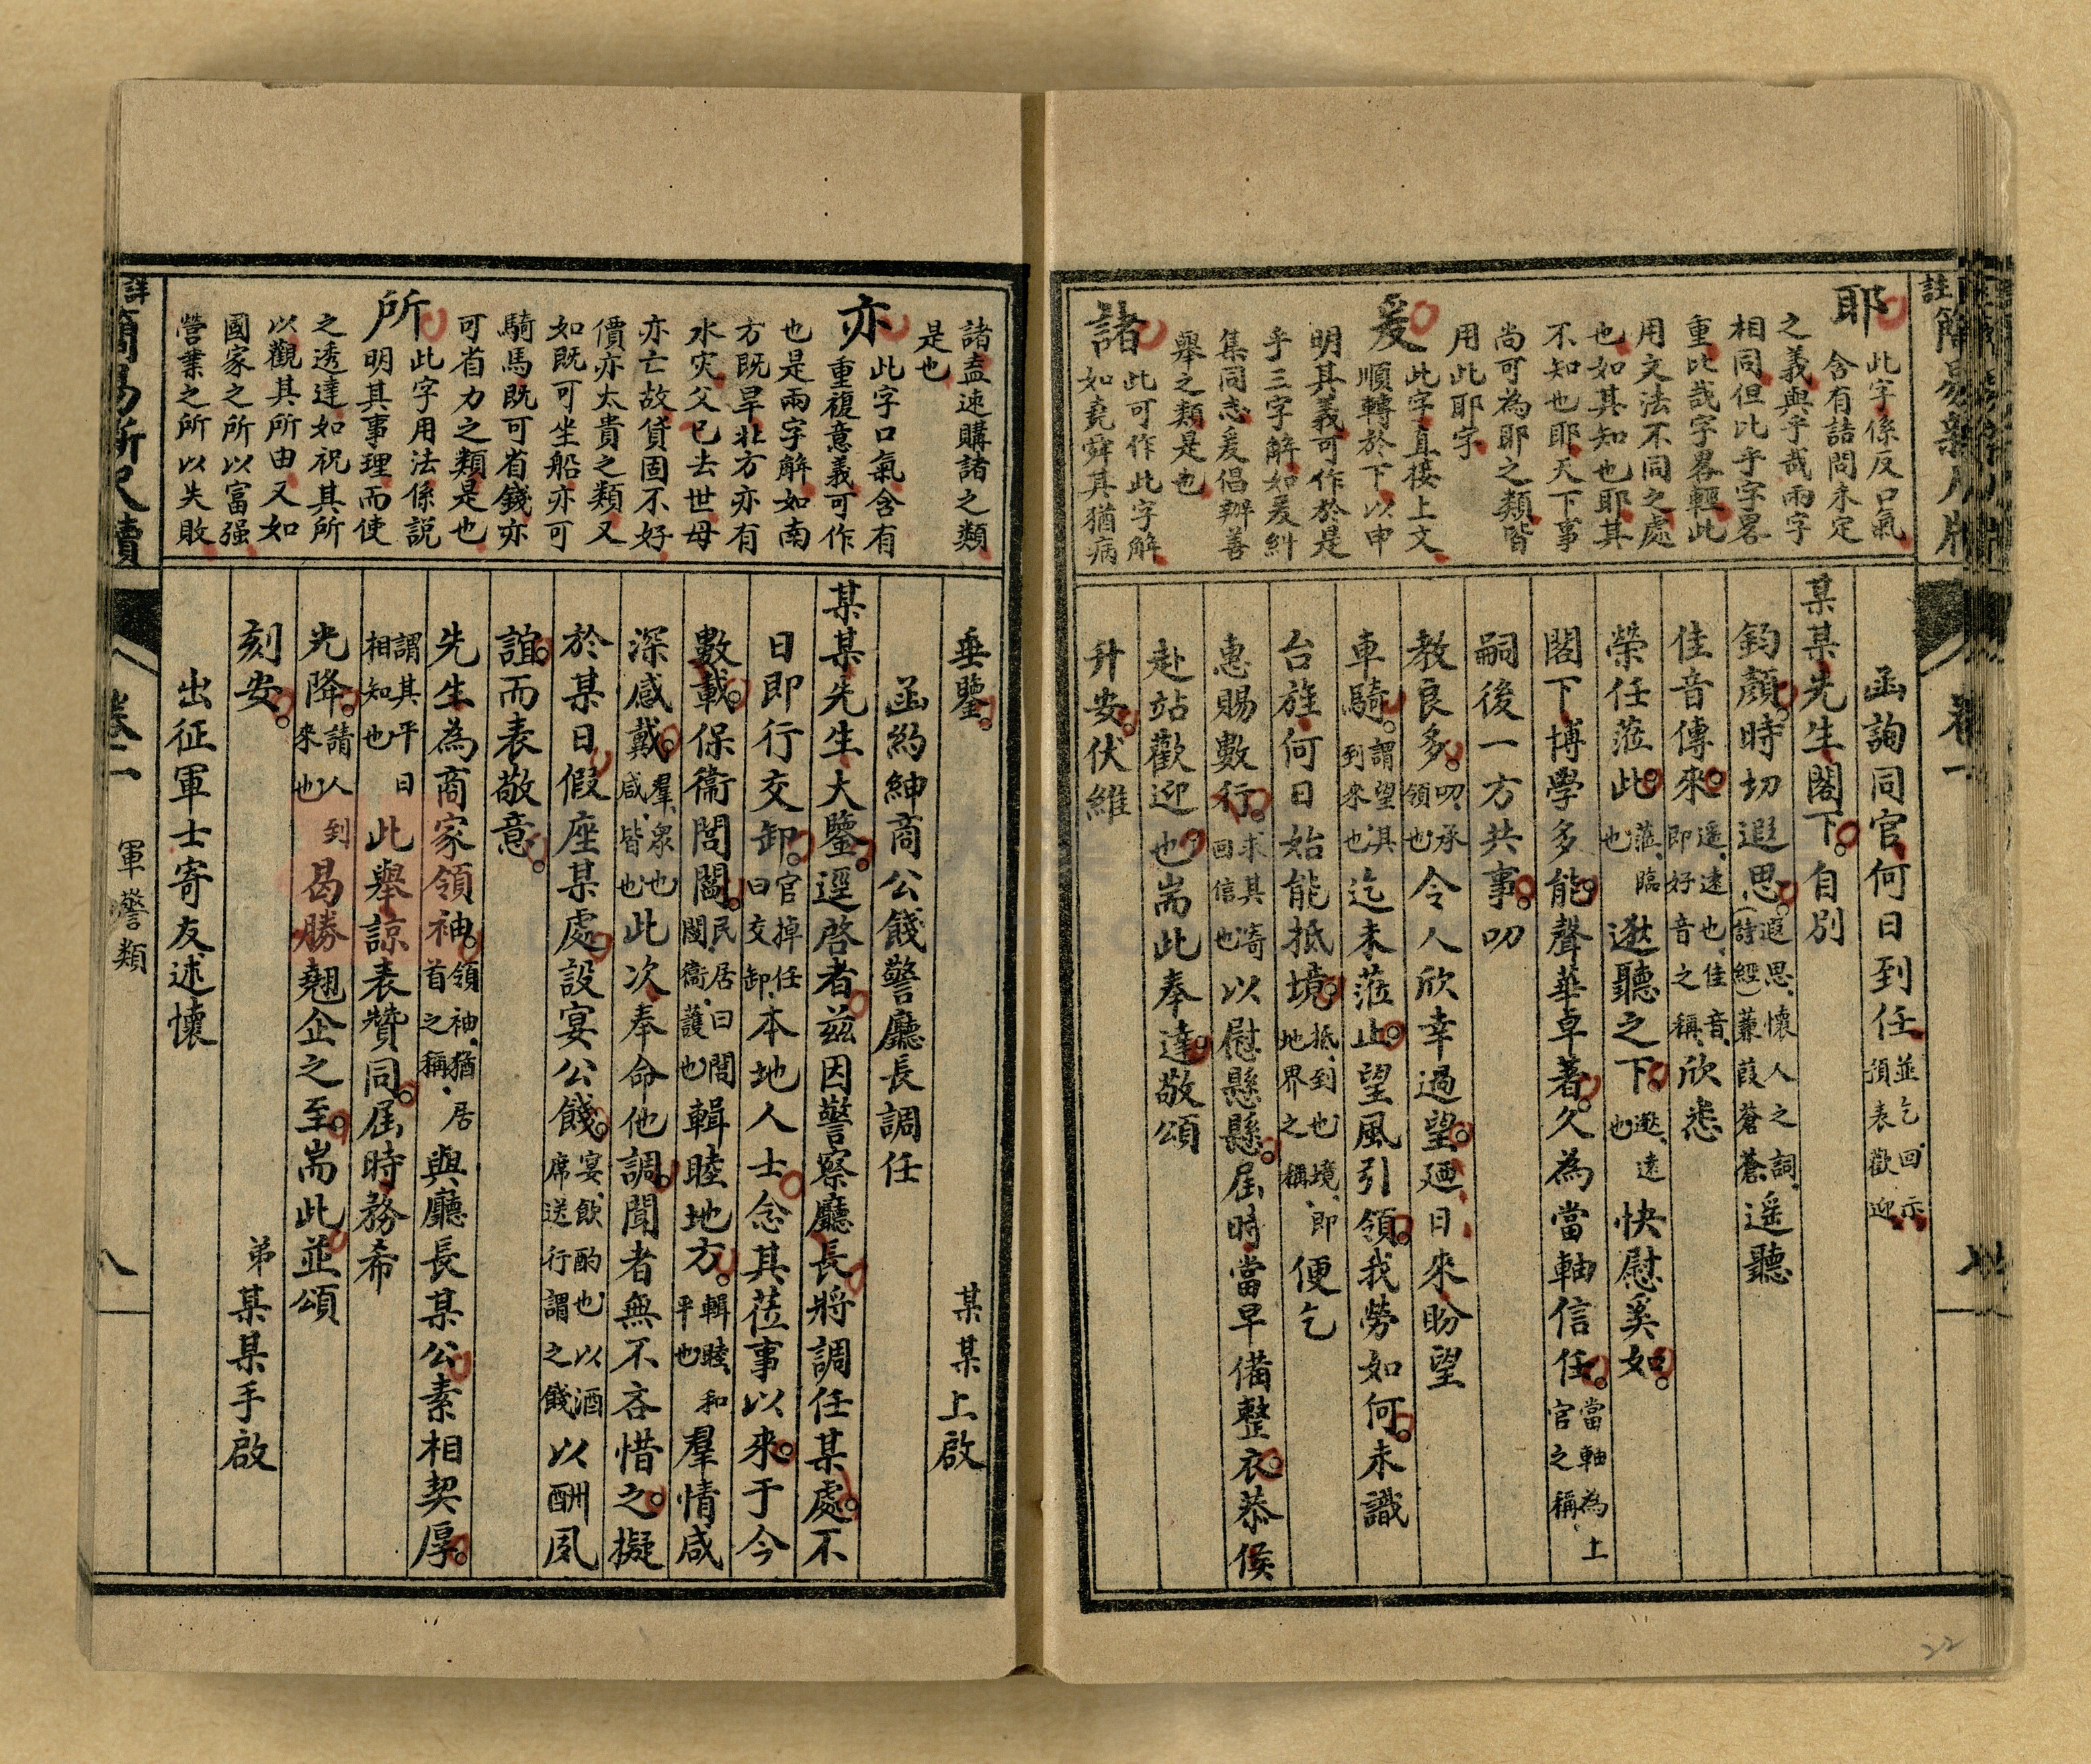 耶 此字係反口氣
含有詰問未定
之義與乎哉兩字
相同但此乎字畧
重比哉字畧輕此
用文法不同之處
也如其知也耶其
不知也耶天下事
尚可為耶之類皆
用此耶字
爰 此字直接上文
順轉於下以申
明其義可作於是
乎三字解如爰糾
集同志爰倡辦善
舉之類是也
諸 此可作此字解
如堯舜其猶病
函詢同官何日到任 並乞回示預表歡迎
某某先生閣下。自別
鈞顏。時切遐思。遐思、懷人之詞、(詩經)蒹葭蒼蒼、遥聽
佳音傳來。遥、遠也、佳音、即好音之稱、欣悉
榮任蒞此。蒞、臨也逖聽之下。逖、遠也快慰奚如。
閣下博學多能。聲華卓著。久為當軸信任。當軸為上官之稱、
嗣後一方共事。叨
教良多。叨、承領也令人欣幸過望。廼日來盼望
車騎。謂望其到來也迄未蒞止。望風引領。我勞如何。未識
台旌何日始能抵境。抵、到也、境、即地界之稱、便乞
惠賜數行。求其寄回信也以慰懸懸。屆時當早備整衣。恭候
赴站歡迎也。耑此奉達。敬頌
升安。伏維
諸盍速購諸之類
是也
亦 此字口氣含有
重複意義可作
也是兩字解如南
方既旱北方亦有
水灾父已去世母
亦亡故貨固不好
價亦太貴之類又
如既可坐船亦可
騎馬既可省錢亦
可省力之類是也
所 此字用法係説
明其事理而使
之透達如祝其所
以觀其所由又如
國家之所以富强
營業之所以失敗
垂鑒。
某某上啟
函約紳商公餞警廳長調任
某某先生大鑒。逕啓者。茲因警察廳長。將調任某處。不
日即行交卸。官掉任曰交卸、本地人士。念其莅事以來。于今
數載。保衞閭閻。民居曰閭閻衞、護也輯睦地方。輯睦、和平也羣情咸
深感戴。羣、衆也咸、皆也此次奉命他調。聞者無不吝惜之。擬
於某日。假座某處。設宴公餞。宴、飲酌也以酒席送行謂之餞以酬夙
誼。而表敬意。
先生為商家領袖。領袖、猶居首之稱、與廳長某公。素相契厚。
謂其平日相知也此舉諒表贊同。屆時務希
光降。請人到來也曷勝翹企之至。耑此。並頌
刻安。
弟某某手啟
出征軍士寄友述懷
簡易新尺牘
卷二
軍警類
八